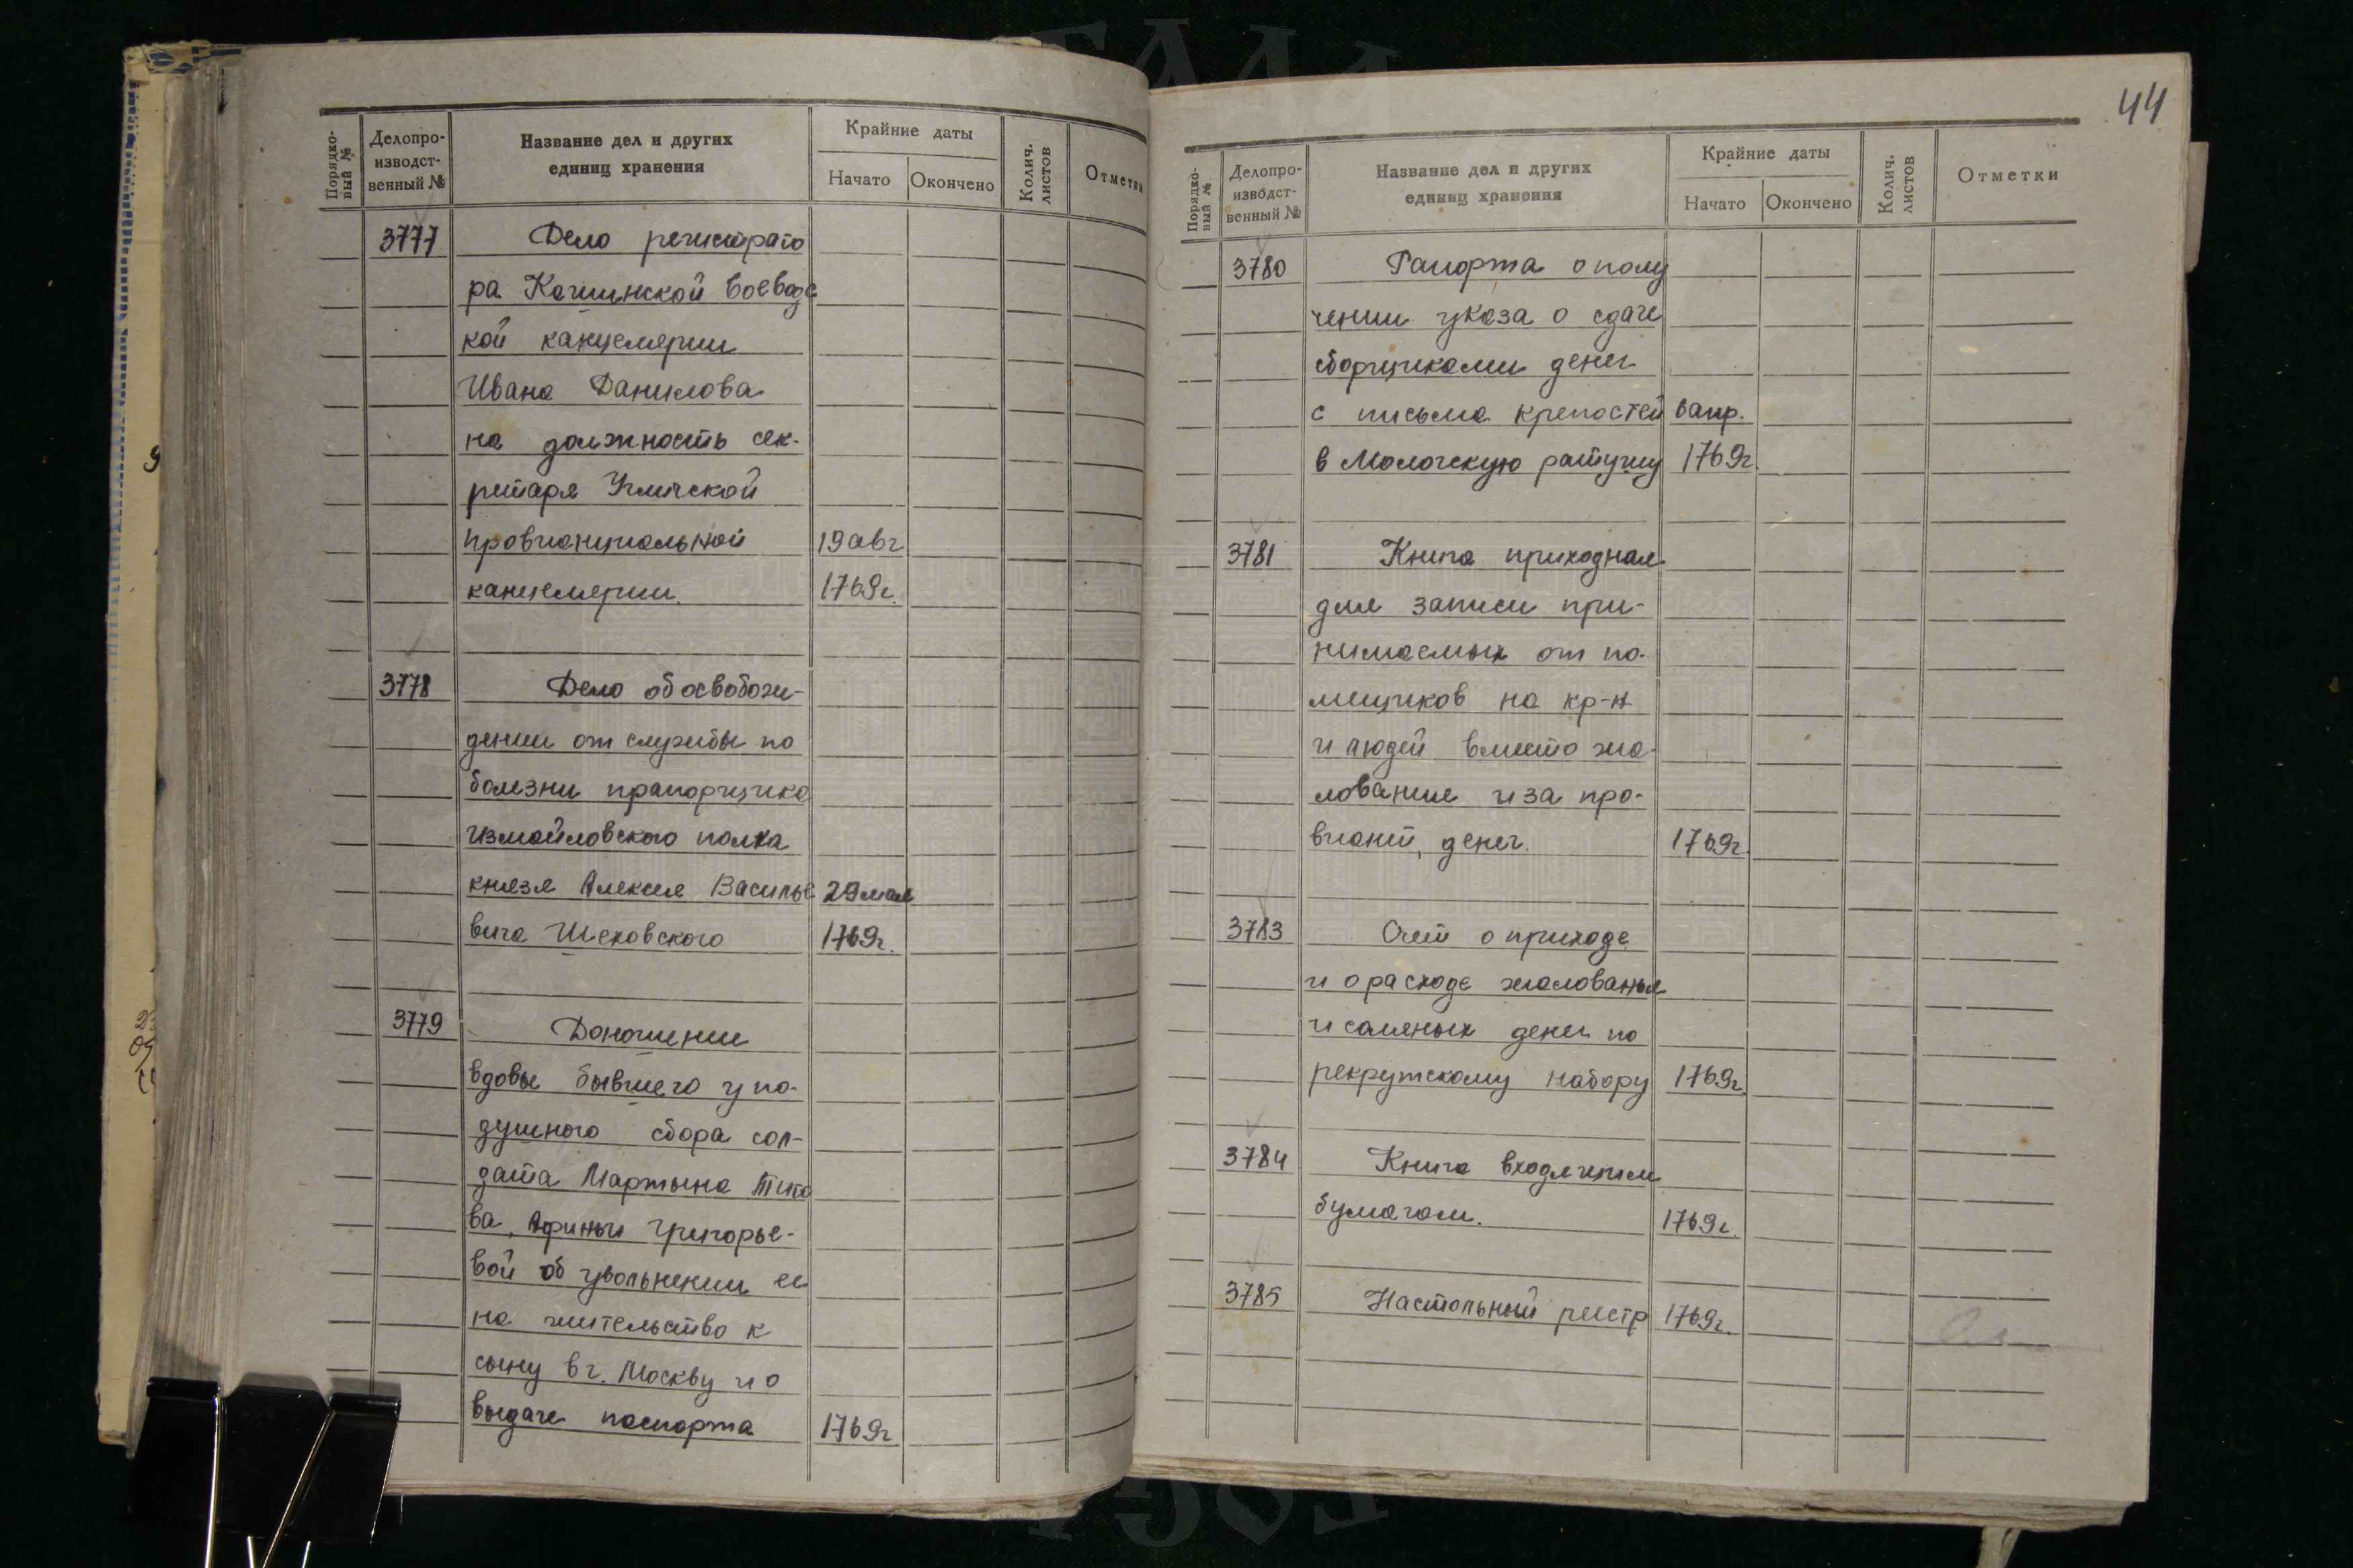 Порядко-
вый №
Делопро-
изводст-
венный №
Название дел и других
единиц хранения
Крайние даты
Начато
Окончено
Колич.
листов
Отметки
3777 Дело регистрато
ра Кашинской воеводс
кой канцелярии
Ивана Данилова
на должность сек-
ретаря Угличской
провианциальной 19 авг
канцелярии. 1769г.
3778 Дело об освобож-
дении от службы по
болезни прапорщика
Измайловского полка
князя Алексея Василье 29 мая
вича Шеховского 1769г.
3779 Доношение
вдовы бывшего у по-
душного сбора сол-
дата Мартына Тито
ва, Афиньи Григорье-
вой об увольнении ее
на жительство к
сыну в г. Москву и о
выдаче паспорта 1769г
44
Порядко-
вый №
Делопро-
изводст-
венный №
Название дел и других
единиц хранения
Крайние даты
Начато
Окончено
Колич.
листов
Отметки
3780 Рапорта о полу
чении указа о сдаче
сборщиками денег
с письма крепостей 6 апр.
в Мологскую ратушу 1769г.
3781 Книга приходная
для записи при-
нимаемых от по-
мещиков на кр-н
и людей вместо жа-
лования и за про-
виант, денег. 1769г.
3783 Счет о приходе
и о расходе жалованья
и соляных денег по
рекрутскому набору 1769г.
3784 Книга входящим
бумагам. 1769г.
3785 Настольный реестр 1769г.